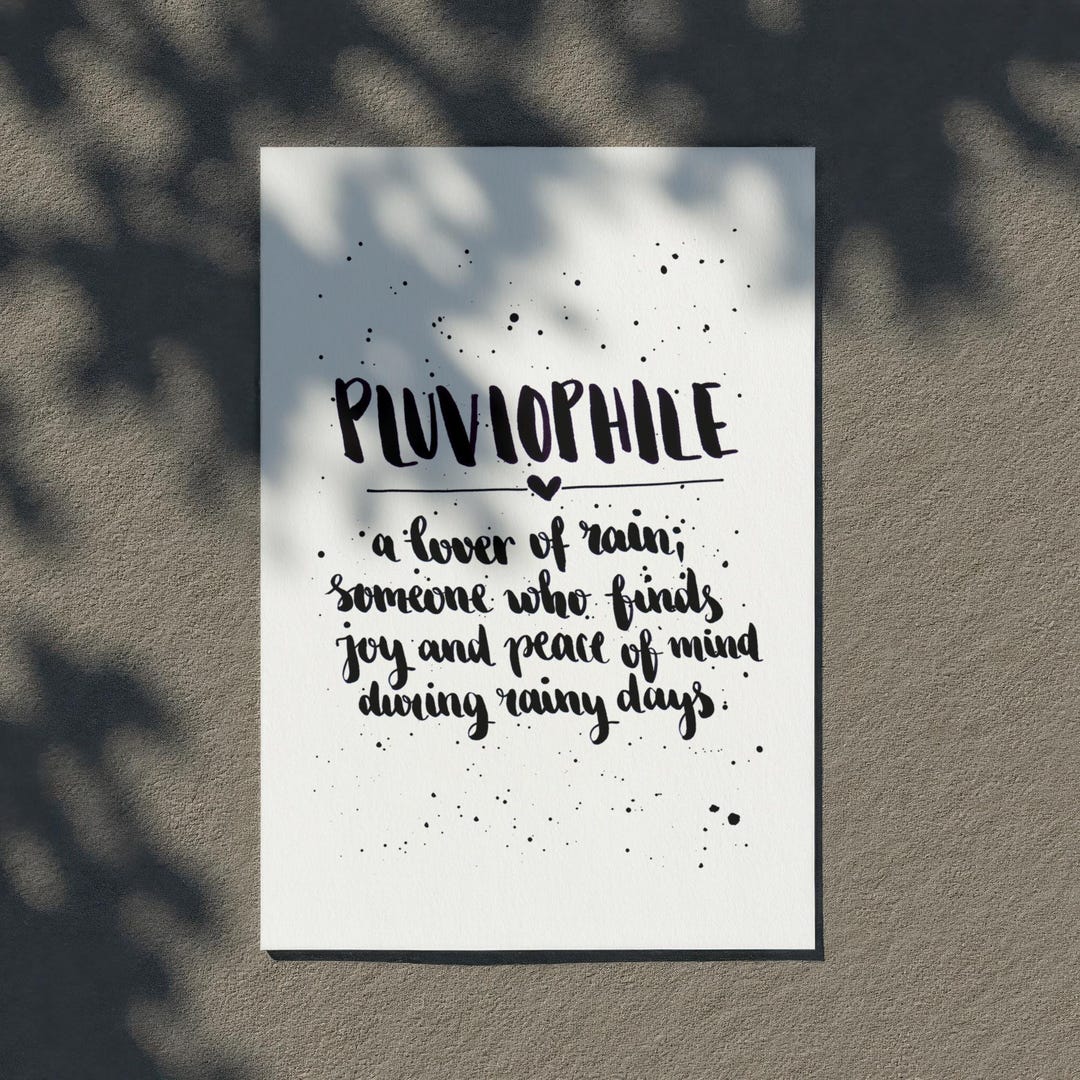 PLUVIOPHILE
a lover of rain;
someone who finds
joy and peace of mind
during rainy days.